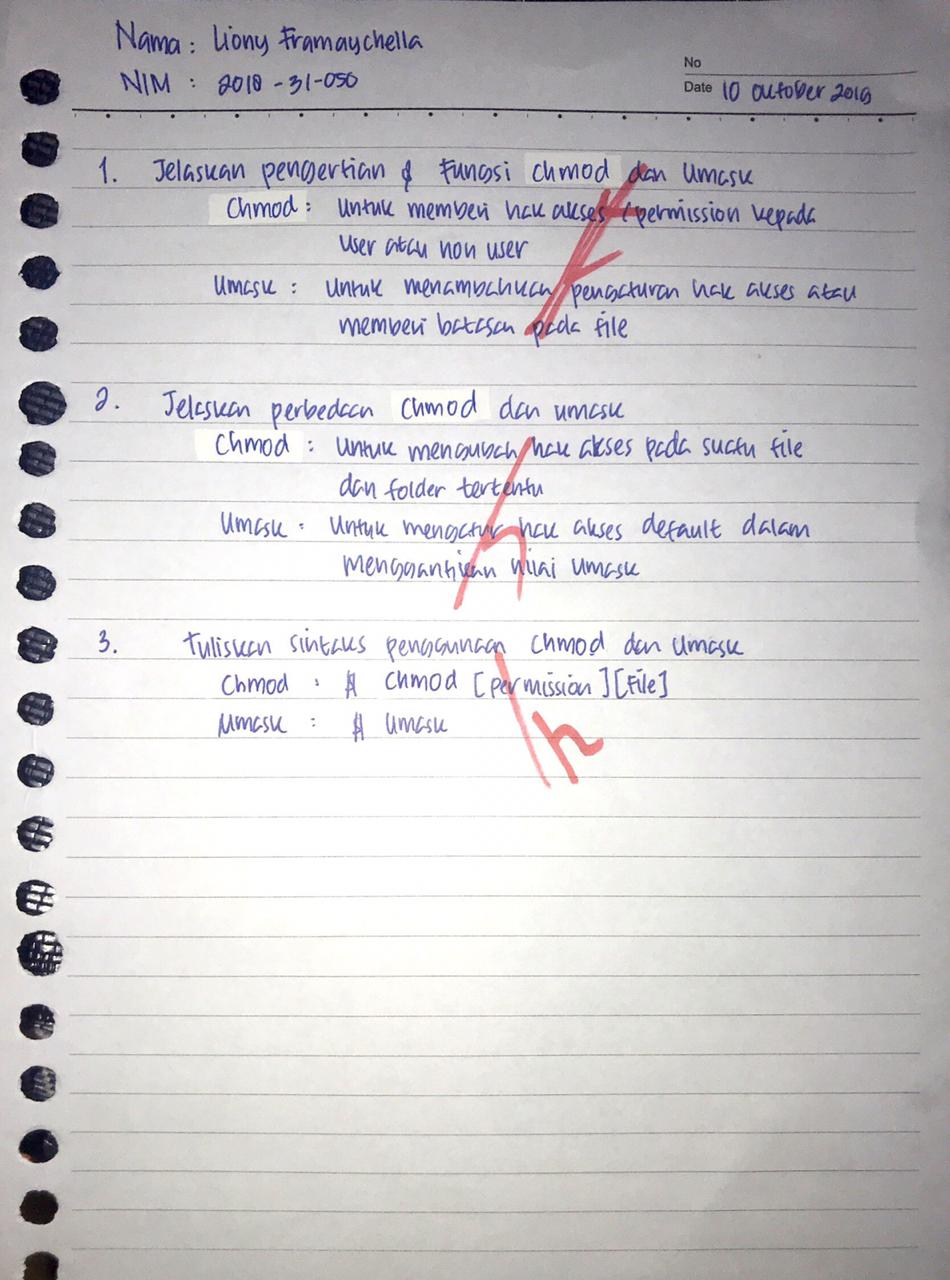 Nama : Liony Framaychella
NIM : 2018-31-050
No
Date 10 October 2019
1. Jelaskan pengertian & Fungsi chmod dan Umask
Chmod : Untuk memberi hak akses / permission kepada
User atau non user
Umask : Untuk menambahkan pengaturan hak akses atau
memberi batasan pada file
2. Jelaskan perbedaan chmod dan umask
Chmod : Untuk mengubah hak akses pada suatu file
dan folder tertentu
Umask : Untuk mengatur hak akses default dalam
menggantikan nilai umask
3. Tuliskan sintaks penggunaan Chmod dan Umask
Chmod : # Chmod [permission][File]
Umask : # Umask